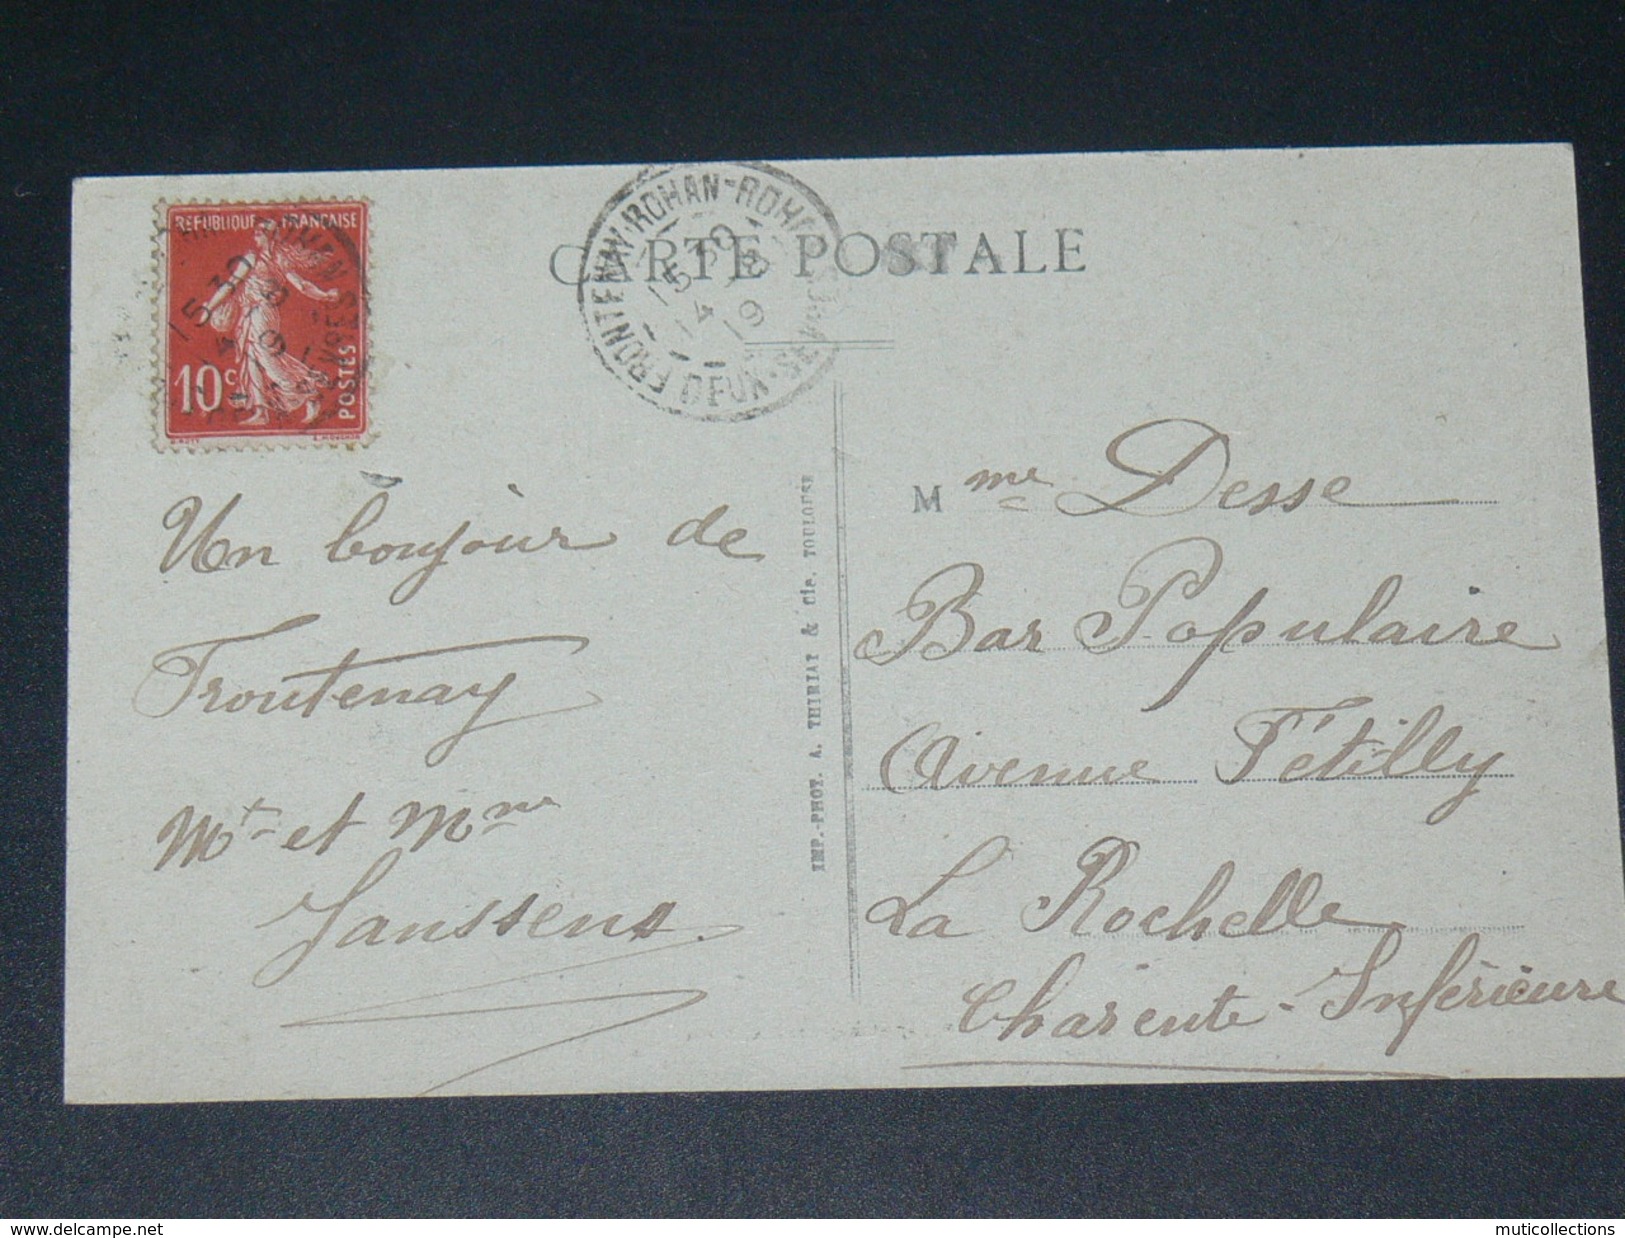 REPUBLIQUE FRANÇAISE
10c
POSTES
FRONTENAY-ROHAN-ROHAN
15 30
4
19
DEUX-SEVRES
CARTE POSTALE
Un bonjour de
Frontenay
Mr et Mme
Janssens.
IMP.-PHOT. A. THIRIAT & Cie. TOULOUSE
Mme Desse
Bar Populaire
Avenue Fétilly
La Rochelle
Charente-Inférieure
muticollections